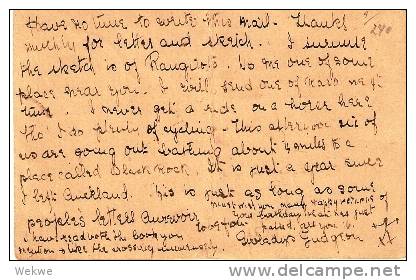 Have no time to write this mail. Thanks
muchly for letter and sketch. I surmise
the sketch is of Rangiolo to me one of some
place near you. I will send one of mine next
time. I never get a ride on a horse here
tho' I do plenty of cycling. This afternoon six of
us are going out bathing about 14 miles to a
place called Black Rock. It is just a year since
I left Auckland. This is just as long as some
peoples letters Answers
must wish you many happy returns of
your birthday that has just
passed, are you 16.
I have read both the books you
mention & like the crossing immensely.
to everyone
Gwladys Gudgeon
240
delcampe.net